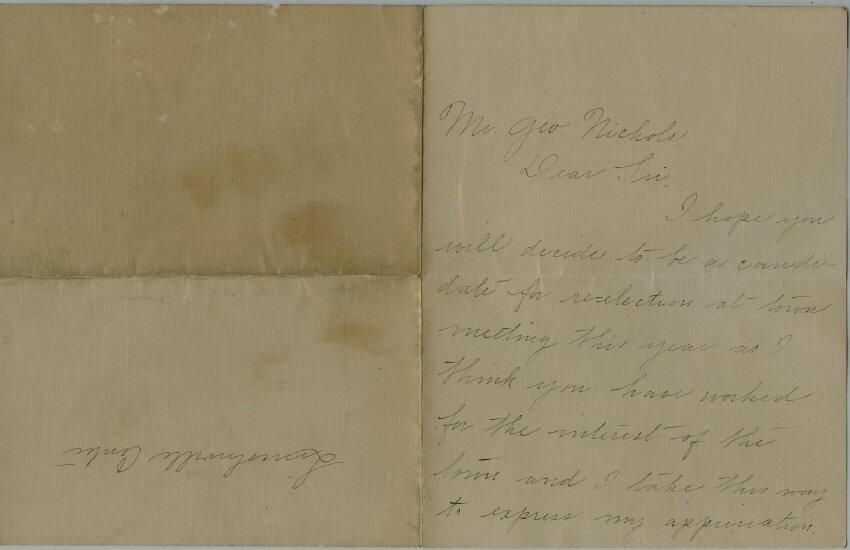 Mr. Geo. Nichols,
Dear Sir,
I hope you
will decide to be a candi-
date for re-election at town
meeting this year as I
think you have worked
for the interest of the
town and I take this way
to express my appreciation.
Lincolnville Center